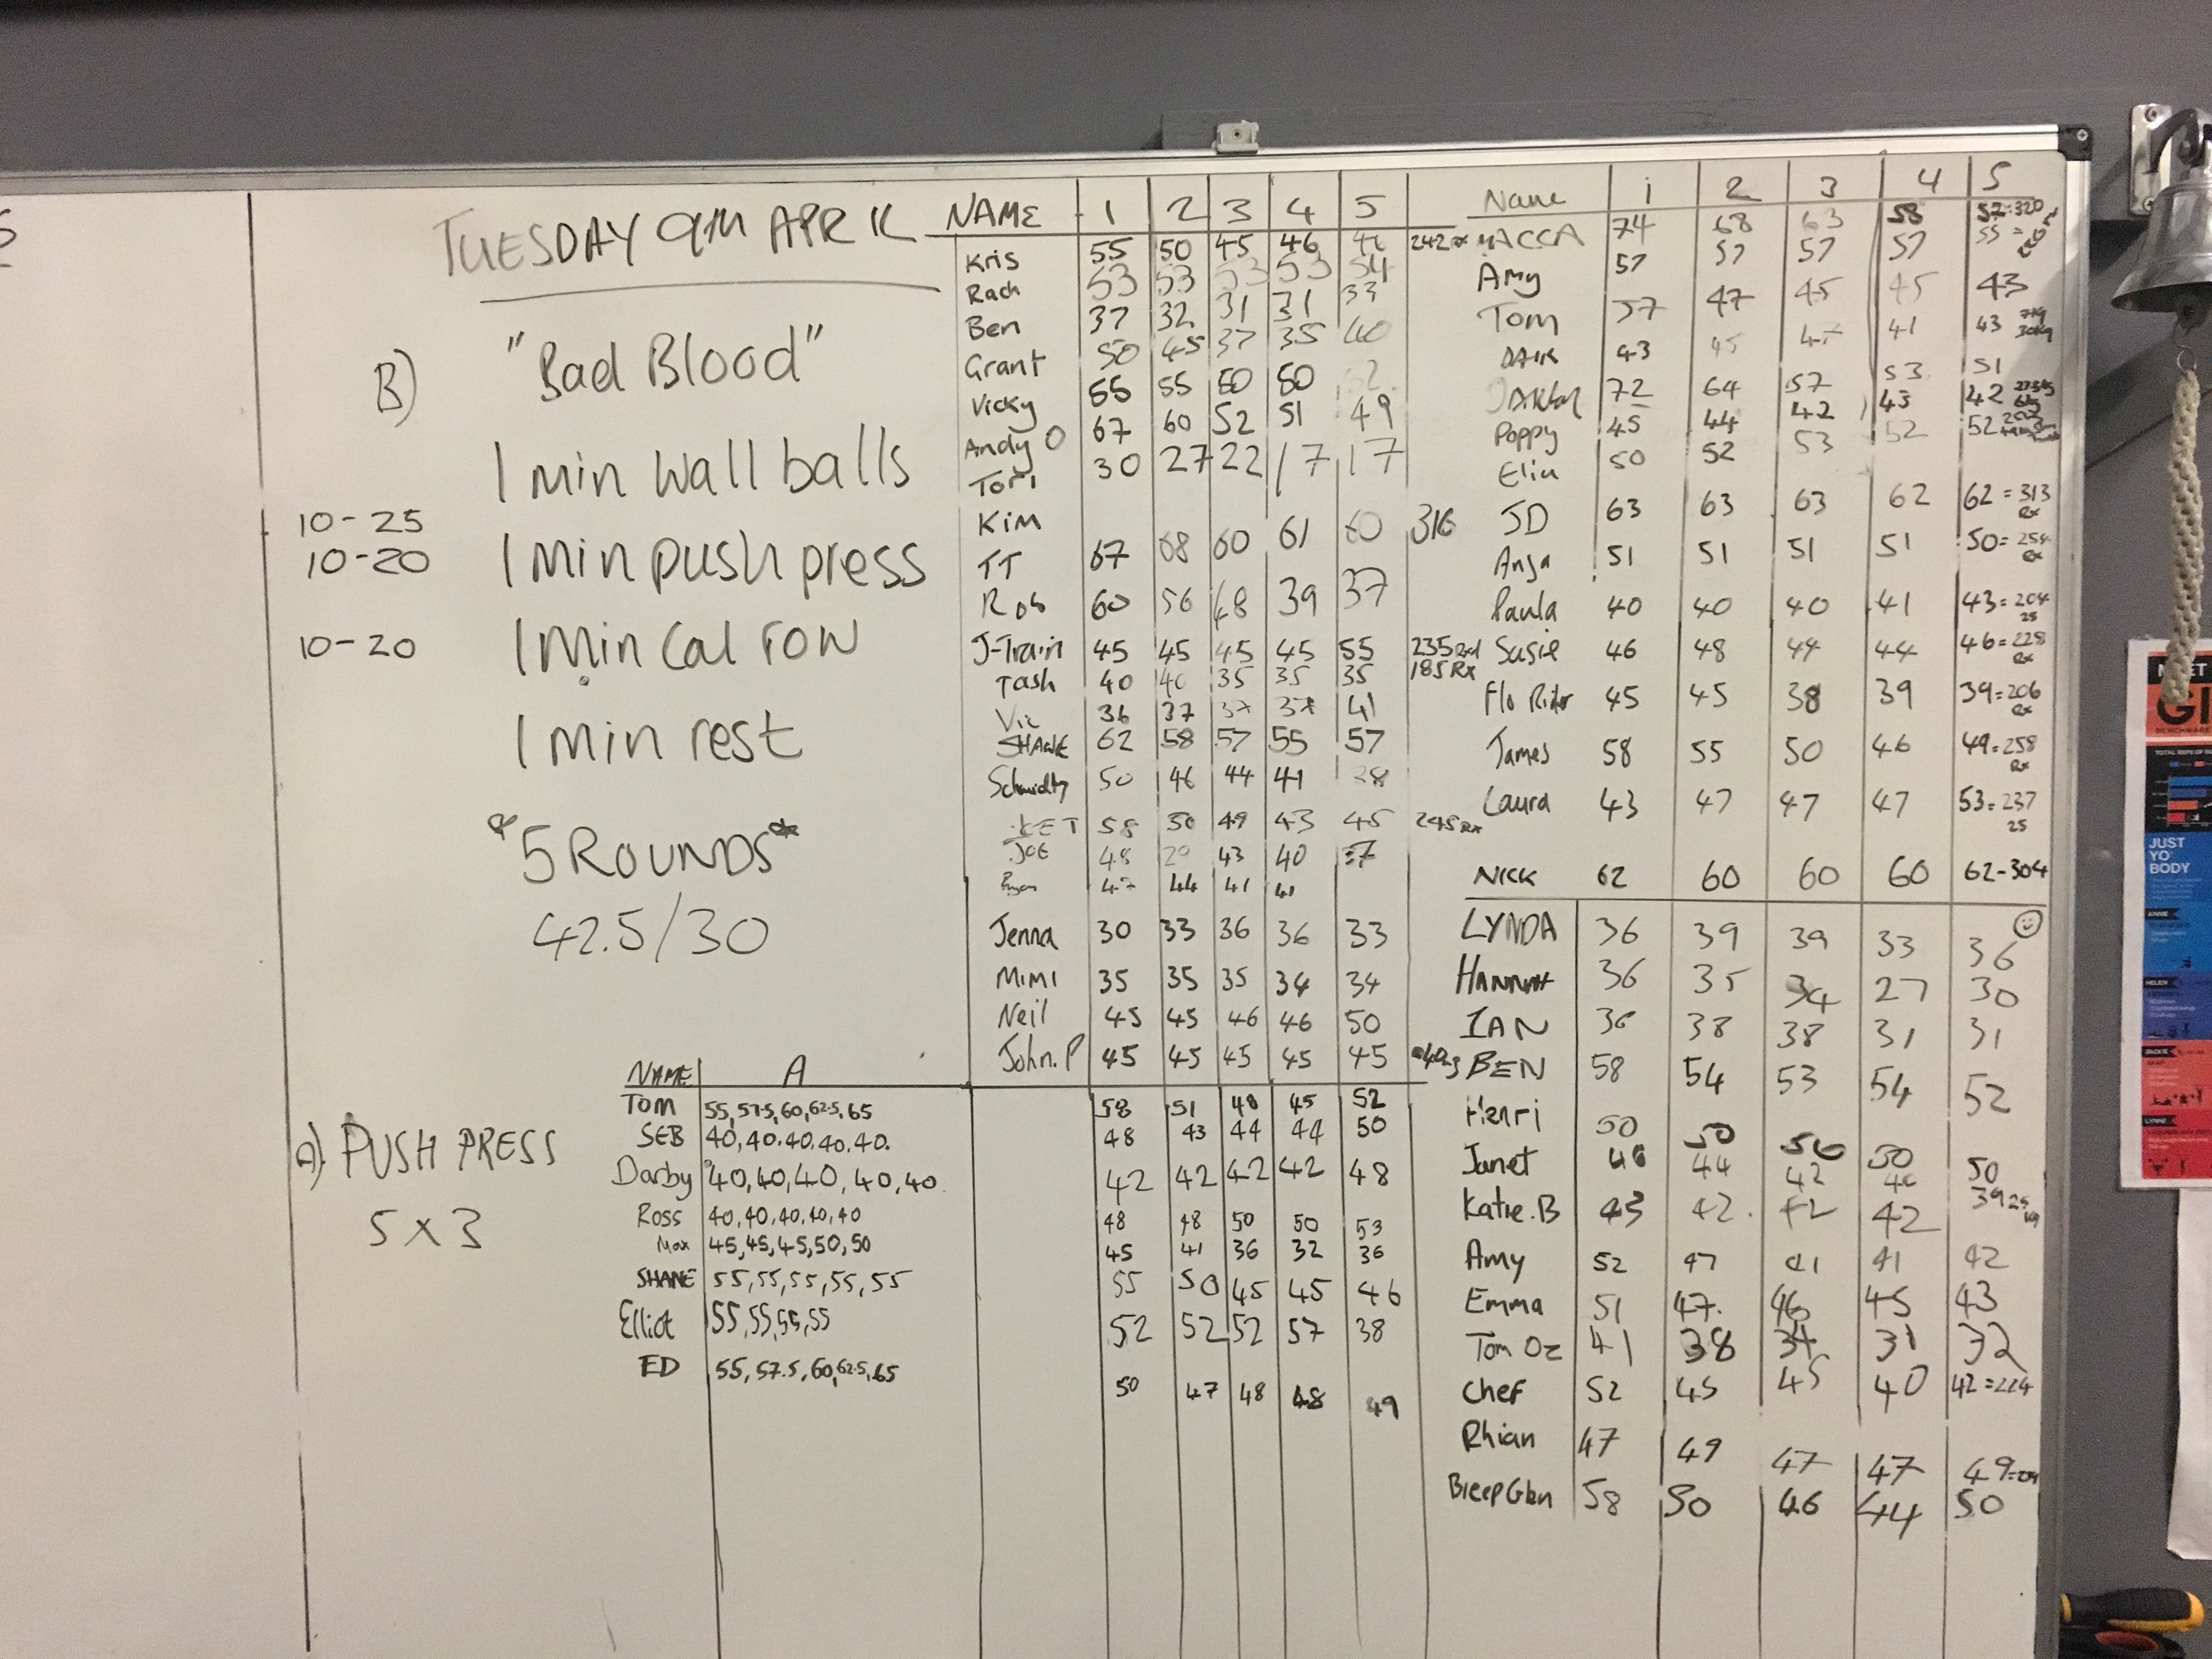 TUESDAY 9TH APRIL
B) "Bad Blood"
1 min wall balls
10-25
10-20 1 min push press
10-20 1 min cal row
1 min rest
*5 ROUNDS*
42.5/30
A) PUSH PRESS
5 x 3
NAME 1 2 3 4 5
Kris 55 50 45 46 242
Rach 53 53 53 53 54
Ben 37 32 31 31 33
Grant 50 45 37 35 40
Vicky 55 55 50 50 52
Andy O 67 60 52 51 49
Tori 30 27 22 17 17
Kim
TT 67 68 60 61 60 316
Rob 60 56 48 39 37
J-Train 45 45 45 45 55 235 Rx
Tash 40 40 35 35 35 185 Rx
Vic 36 37 37 37 41
SHANE 62 58 57 55 57
Schmidty 50 46 44 41 38
58 50 49 43 45 245 Rx
JOE 48 29 43 40 37
44 41 41
Jenna 30 33 36 36 33
Mimi 35 35 35 34 34
Neil 45 45 46 46 50
John.P 45 45 45 45 45
NAME A
Tom 55, 57.5, 60, 62.5, 65 58 51 48 45 52
SEB 40, 40, 40, 40, 40. 48 43 44 44 50
Darby 40, 40, 40, 40, 40. 42 42 42 42 48
Ross 40, 40, 40, 40, 40 48 48 50 50 53
Max 45, 45, 45, 50, 50 45 41 36 32 36
SHANE 55, 55, 55, 55, 55 55 50 45 45 46
Elliot 55, 55, 55, 55 52 52 52 57 38
ED 55, 57.5, 60, 62.5, 65 50 47 48 48 49
Name 1 2 3 4 5
MACCA 74 68 63 58 57=320
Amy 57 57 57 57 55
Tom 57 47 45 45 43
43 45 47 41 43 7kg 30kg
72 64 57 53 51
Poppy 45 44 42 43 42
50 52 53 52 52
JD 63 63 63 62 62=313 Rx
Anja 51 51 51 51 50=254 Rx
Paula 40 40 40 41 43=204 25
Susie 46 48 44 44 46=228 Rx
Flo Rider 45 45 38 39 39=206 Rx
James 58 55 50 46 49=258 Rx
Laura 43 47 47 47 53=237 25
NICK 62 60 60 60 62-304
LYNDA 36 39 39 33 36
HANNAH 36 35 34 27 30
IAN 36 38 38 31 31
BEN 58 54 53 54 52
Henri 50 50 50 50 50
Janet 46 44 42 40 39
Katie.B 43 42 42 42
Amy 52 47 41 41 42
Emma 51 47 46 45 43
Tom Oz 41 38 34 31 32
Chef 52 45 45 40 42=224
Rhian 47 49 47 47 49
58 50 46 44 50
JUST
YO
BODY